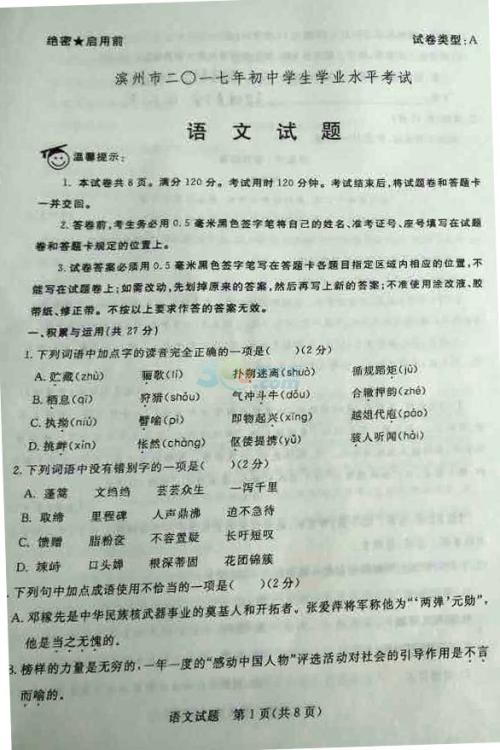 绝密★启用前
试卷类型:A
滨州市二〇一七年初中学生学业水平考试
语文试题
温馨提示:
1. 本试卷共8页。满分120分。考试用时120分钟。考试结束后,将试题卷和答题卡
一并交回。
2. 答卷前,考生务必用0.5毫米黑色签字笔将自己的姓名、准考证号、座号填写在试题
卷和答题卡规定的位置上。
3. 试卷答案必须用0.5毫米黑色签字笔写在答题卡各题目指定区域内相应的位置,不
能写在试题卷上;如需改动,先划掉原来的答案,然后再写上新的答案;不准使用涂改液、胶
带纸、修正带。不按以上要求作答的答案无效。
一、积累与运用(共27分)
1. 下列词语中加点字的读音完全正确的一项是( )(2分)
A. 贮藏(zhù) 骊歌(lí) 扑朔迷离(shuò) 循规蹈矩(jǔ)
B. 栖息(qī) 狩猎(shǒu) 气冲斗牛(dǒu) 合辙押韵(zhé)
C. 执拗(niù) 譬喻(pì) 即物起兴(xīng) 越俎代庖(páo)
D. 挑衅(xìn) 怅然(chàng) 伛偻提携(yǔ) 骇人听闻(hài)
2. 下列词语中没有错别字的一项是( )(2分)
A. 蓬蒿 文绉绉 芸芸众生 一泻千里
B. 取缔 里程碑 人声鼎沸 迫不急待
C. 馈赠 脂粉奁 不容置疑 长吁短叹
D. 竦峙 口头婵 根深蒂固 花团锦簇
下列句中加点成语使用不恰当的一项是( )(2分)
A. 邓稼先是中华民族核武器事业的奠基人和开拓者。张爱萍将军称他为“‘两弹’元勋”,
他是当之无愧的。
B. 榜样的力量是无穷的,一年一度的“感动中国人物”评选活动对社会的引导作用是不言
而喻的。
语文试题 第1页(共8页)